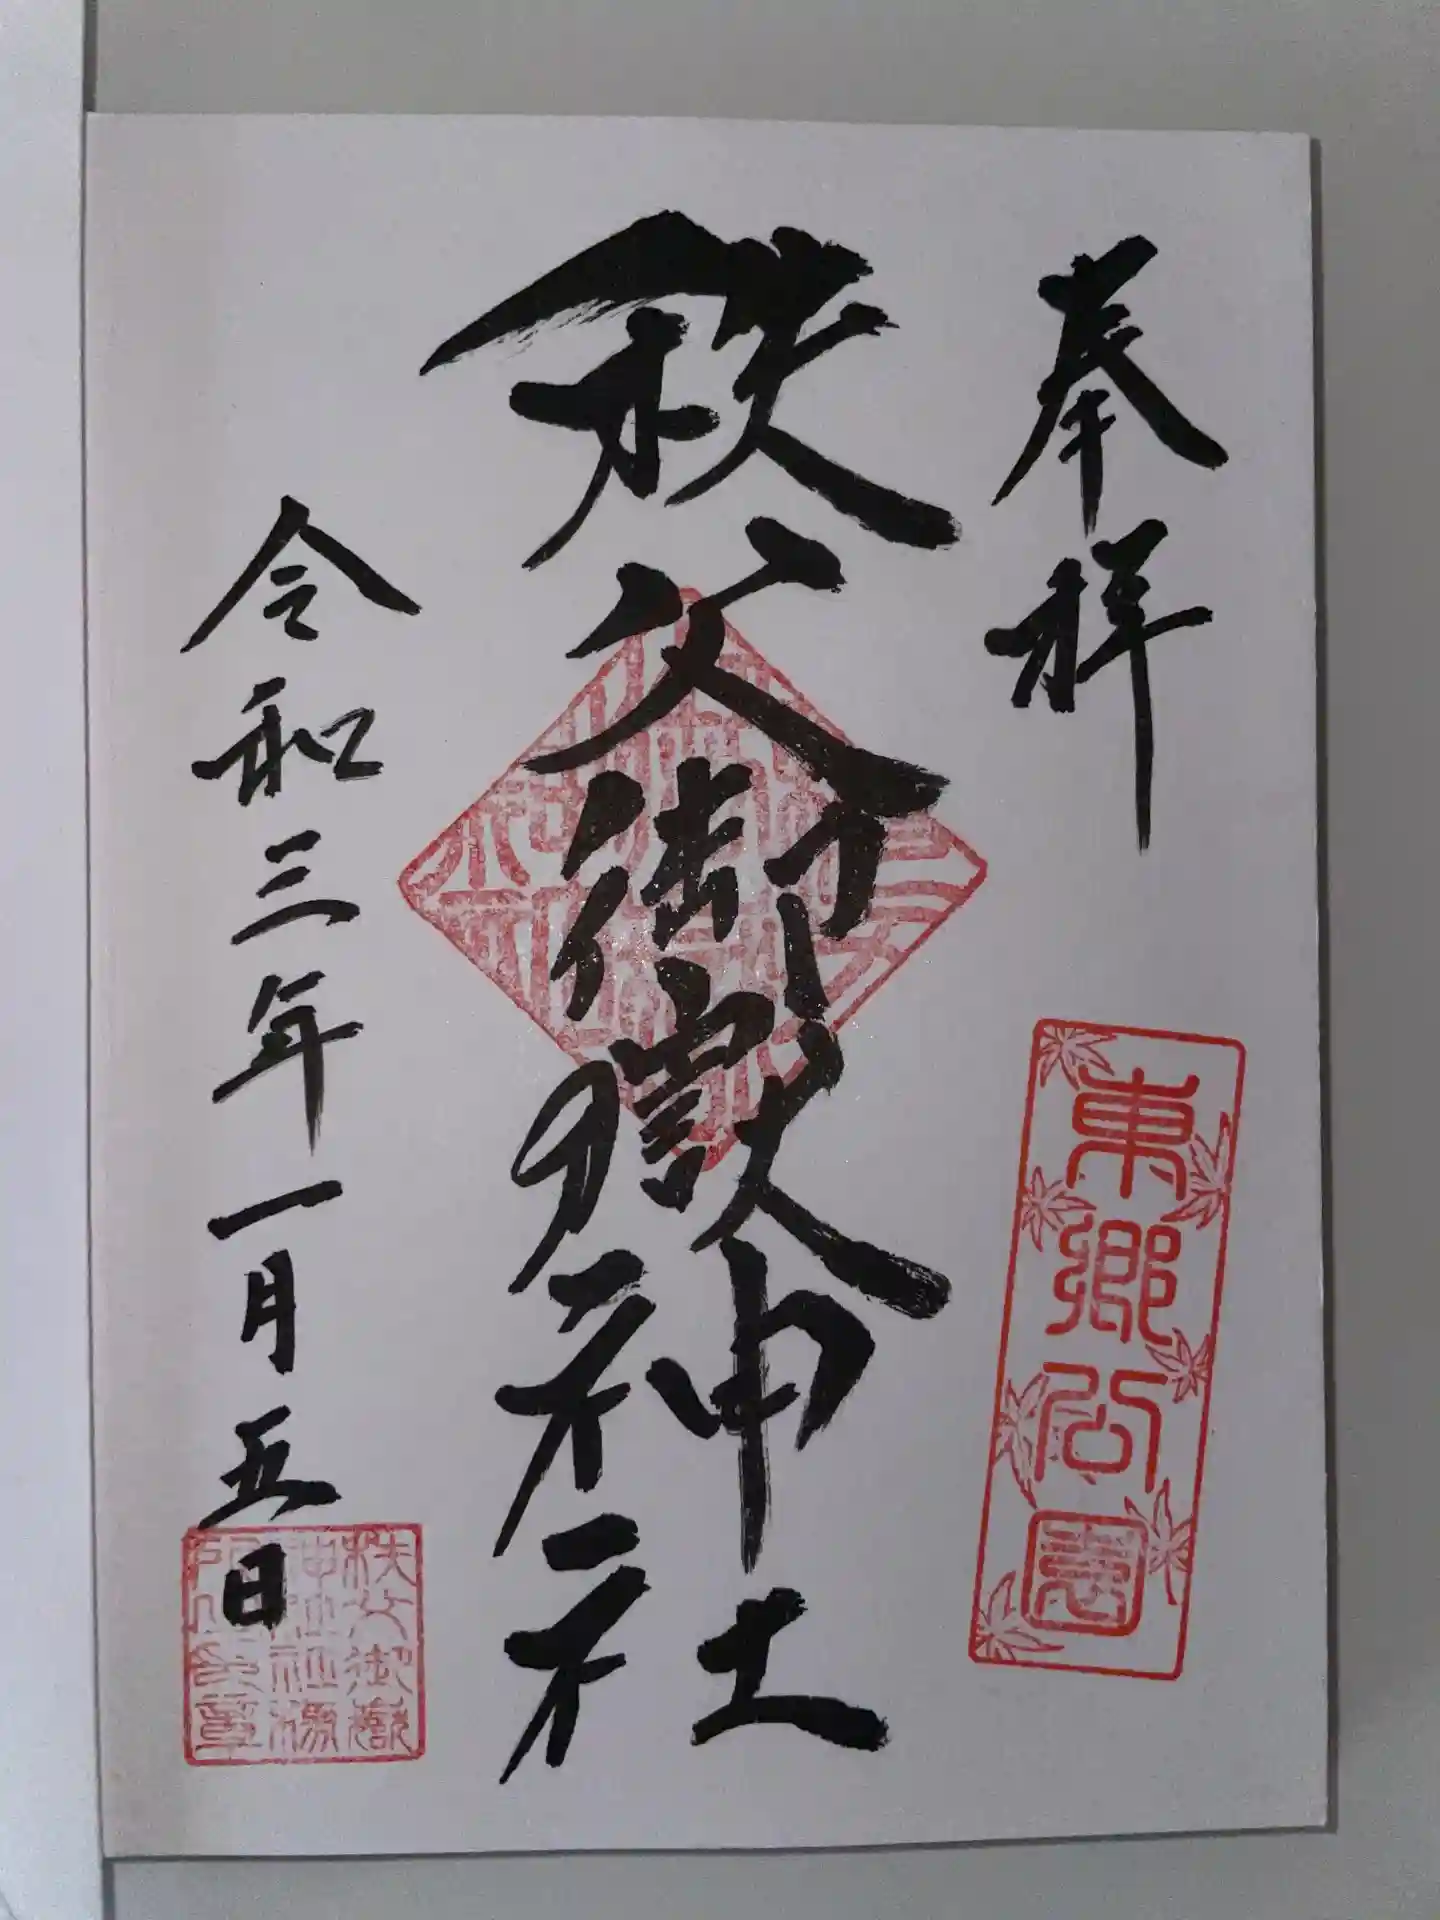 奉拝
東郷公園
秩父御嶽神社
令和三年一月五日
秩父御嶽
神社社務
所之印章